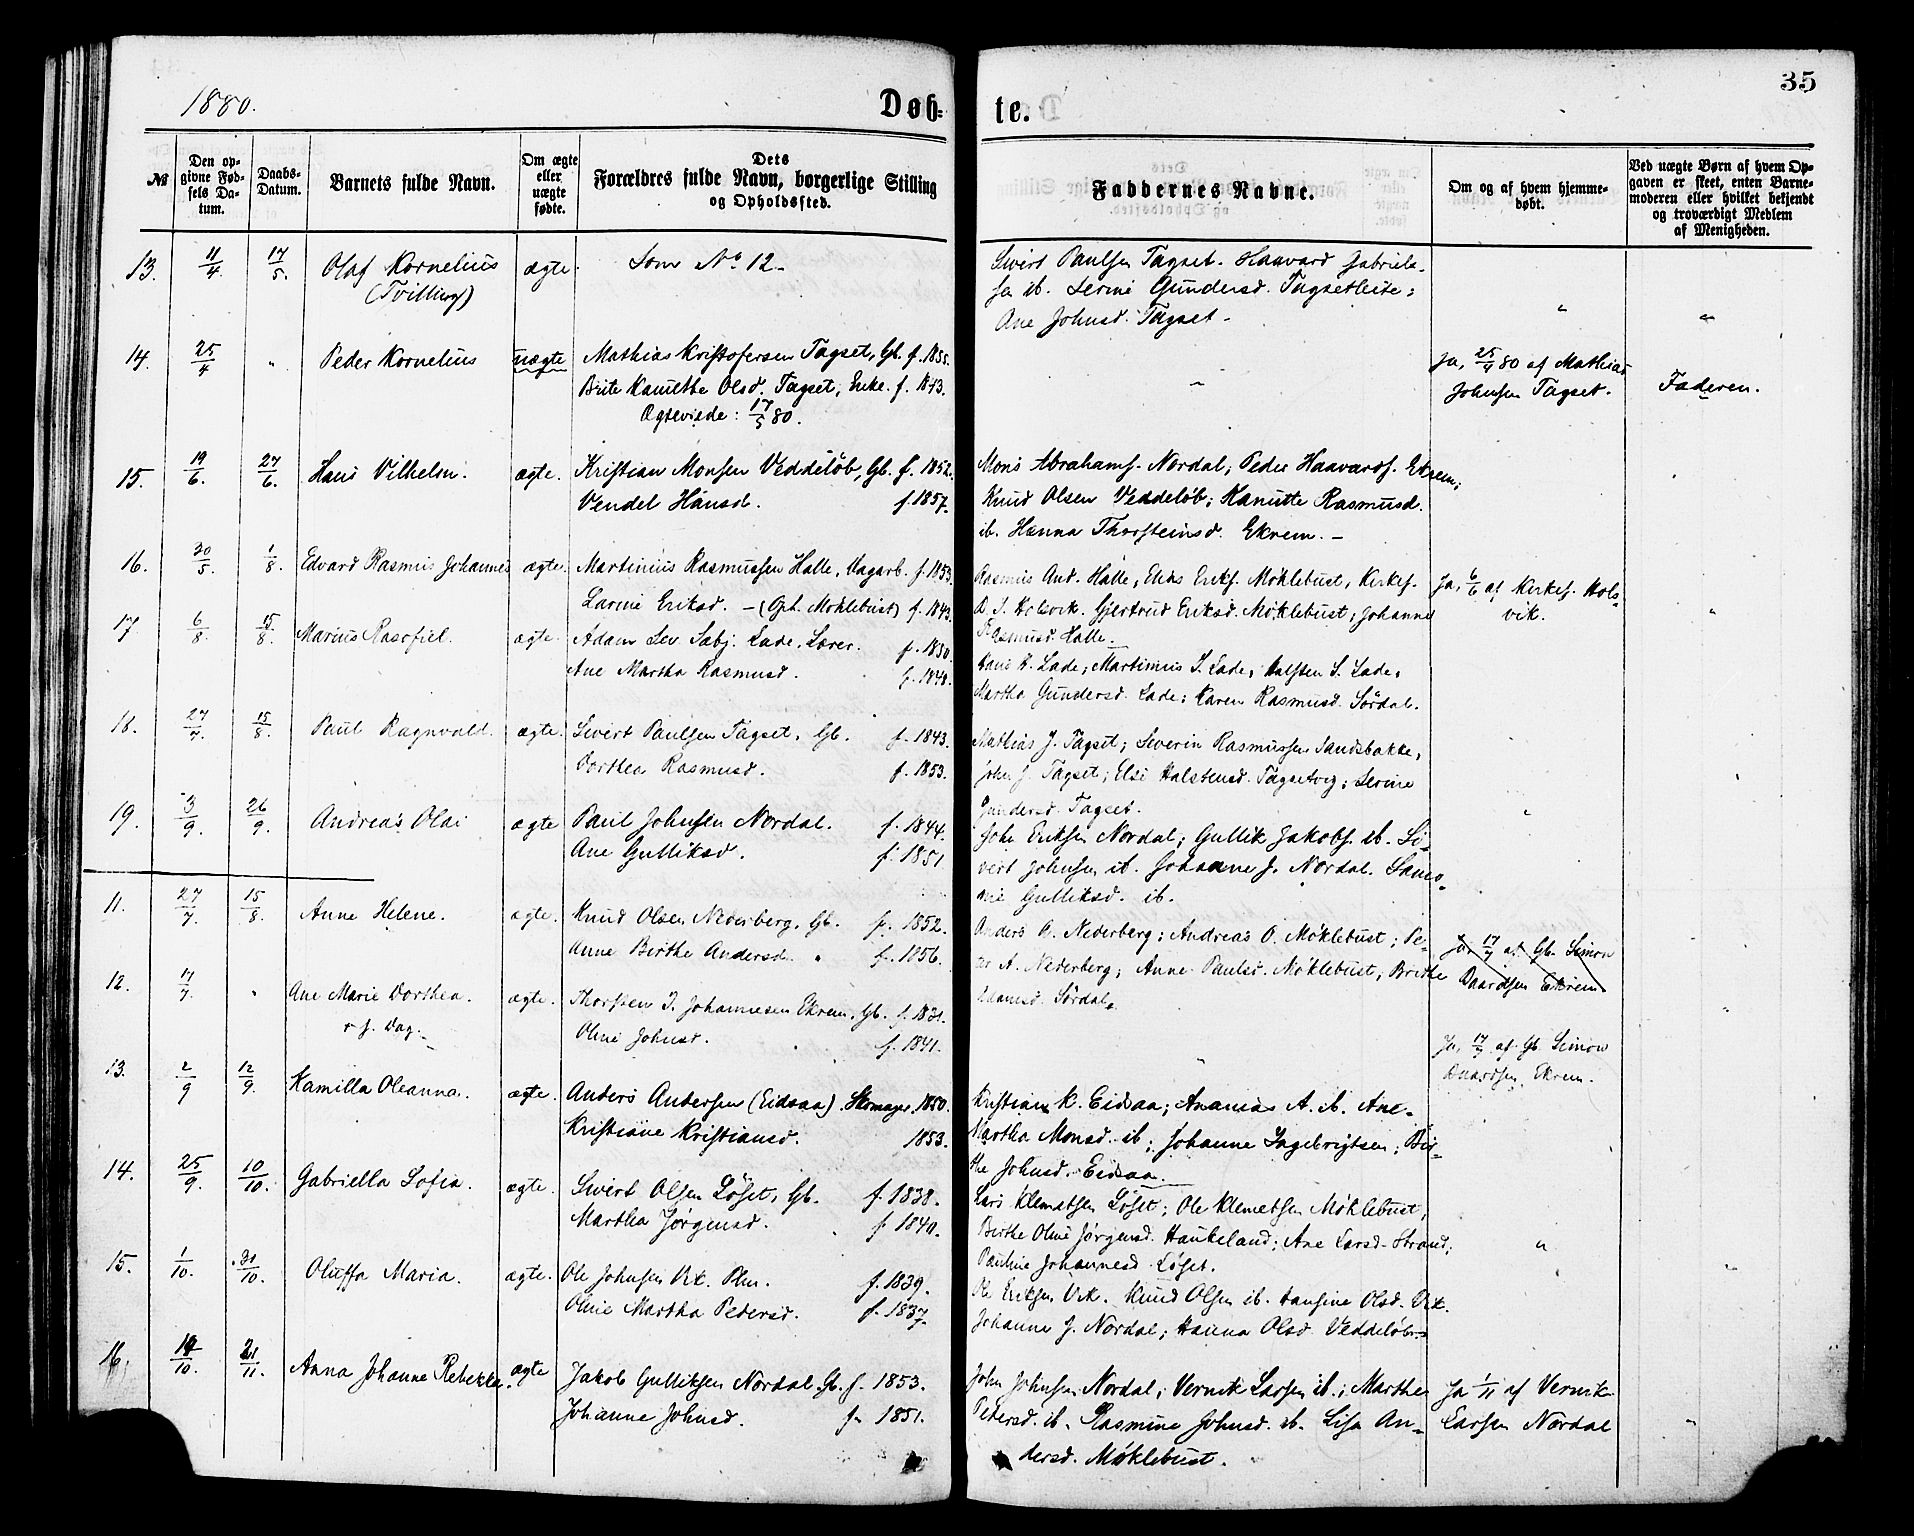 1880.
Døb-
te.
35
№
Den op-
givne Fød-
sels Da-
tum.
Daabs-
Datum.
Barnets fulde Navn.
Om ægte
eller
uægte
fødte.
Dets
Forældres fulde Navn, borgerlige Stilling
og Opholdssted.
Faddernes Navne.
Om og af hvem hjemme-
døbt.
Ved uægte Børn af hvem Op-
gaven er skeet, enten Barne-
moderen eller hvilket bekjendt
og troværdigt Medlem
af Menigheden.
13. 11/4. 17/5. Olaf Kornelius ægte. Som No 12.
(Tvilling)
Sivert Paulsen Tagset. Haavard Gabriel-
sen ib. Serine Gundersd. Tagsetleite;
Ane Johnsd. Tagset.
14. 25/4 " Peder Kornelius uægte Mathias Kristofersen Tagset, Gb. f. 1855.
Brite Kanutte Olsd. Tagset, Enke. f. 1843.
Ægteviede: 17/5 80.
Ja, 25/4 80 af Mathias
Johnsen Tagset.
Faderen.
15. 19/6. 27/6. Hans Vilhelm. ægte. Kristian Monsen Veddeløb, Gb. f. 1852.
Vendel Hansd. f. 1857.
Mons Abrahams. Nordal; Peder Haavards. Ekrem;
Knud Olsen Veddeløb; Kanutte Rasmusd.
ib. Hanna Thorsteinsd. Ekrem. —
16. 30/5. 1/8. Edvard Rasmus Johannes ægte. Martinius Rasmussen Halle, f. 1853.
Larine Eriksd. — (Møklebust) f. 1843.
Rasmus And. Halle, Elias Eriks. Møklebust, Kirkes.
Holsvik. Gjertrud Eriksd. Møklebust, Johanne
Rasmusd. Halle.
Ja, 6/6 af Kirkes. Hols-
vik.
17 6/8. 15/8. Marius ægte. Adam Lade, Lærer. f. 1830.
Ane Martha Rasmusd. f. 1840.
Hans H. Lade; Martinius S. Lade, Halsten S. Lade,
Martha Gundersd. Lade; Karen Rasmusd. Sørdal.
18. 27/7. 15/8. Paul Ragnvald. ægte. Sivert Paulsen Tagset, Gb. f. 1843.
Dorthea Rasmusd. f. 1853.
Mathias J. Tagset; Severin Rasmussen Sandsbakke,
John J. Tagset; Elsi Halstensd. Tagsetvig; Serine
Gundersd. Tagset.
19. 3/9. 26/9. Andreas Olai ægte Paul Johnsen Nordal. f. 1844.
Ane Gulliksd. f. 1851
John Eriksen Nordal; Gullik Jakobs. ib. Si-
vert Johnsen ib. Johanne J. Nordal.
Gulliksd. ib.
11. 27/7. 15/8. Anne Helene. ægte. Knud Olsen Nederberg, Gb. f. 1852.
Anne Birthe Andersd. f. 1856.
Anders A. Nederberg; Andreas O. Møklebust; Pe-
der A. Nederberg; Anne Paulsd. Møklebust, Birthe
Adamsd. Sørdal.
Ja, 17/7 af Gb. Simon
Daardsen Ekrem.
12. 17/7. " Ane Marie Dorthea. ægte. Thorsten J. Johannesen Ekrem, Gb. f. 1831.
Oline Johnsd. f. 1841.
Ja, 17/7 af Gb. Simon
Daardsen Ekrem.
13. 2/9 12/9. Kamilla Oleanna. ægte. Anders Andersen (Eidsaa). Skomager. 1850.
Kristiane Kristiansd. 1853.
Kristian K. Eidsaa; Ananias A. ib. Ane-
Martha Monsd. ib; Johanne Ingebrigtsen; Bir-
the Johnsd. Eidsaa.
14. 25/9. 10/10. Gabriella Sofia. ægte. Sivert Olsen Løset, Gb. f. 1838.
Martha Jørgensd. f. 1840.
Lars Klemetsen Løset; Ole Klemetsen Møklebust,
Birthe Oline Jørgensd. Haukeland; Ane Larsd. Strand;
Pauline Johannesd. Løset.
15. 1/10. 31/10. Oluffa Maria. ægte. Ole Johnsen Vik. f. 1839.
Oline Martha Pedersd. f. 1837.
Ole Eriksen Vik. Knud Olsen ib. Hansine Olsd. Vik.
Johanne J. Nordal; Hanna Olsd. Veddeløb.
16. 14/10. 21/11. Anna Johanne Rebekka. ægte Jakob Gulliksen Nordal. Gb. f. 1853.
Johanne Johnsd. f. 1851.
John Johnsen Nordal; Vernik Larsen ib.; Marthe
Pedersd. ib. Rasmine Johnsd. ib. Lisa An-
dersd. Møklebust.
Ja 1/11 af Vernik
Larsen Nordal